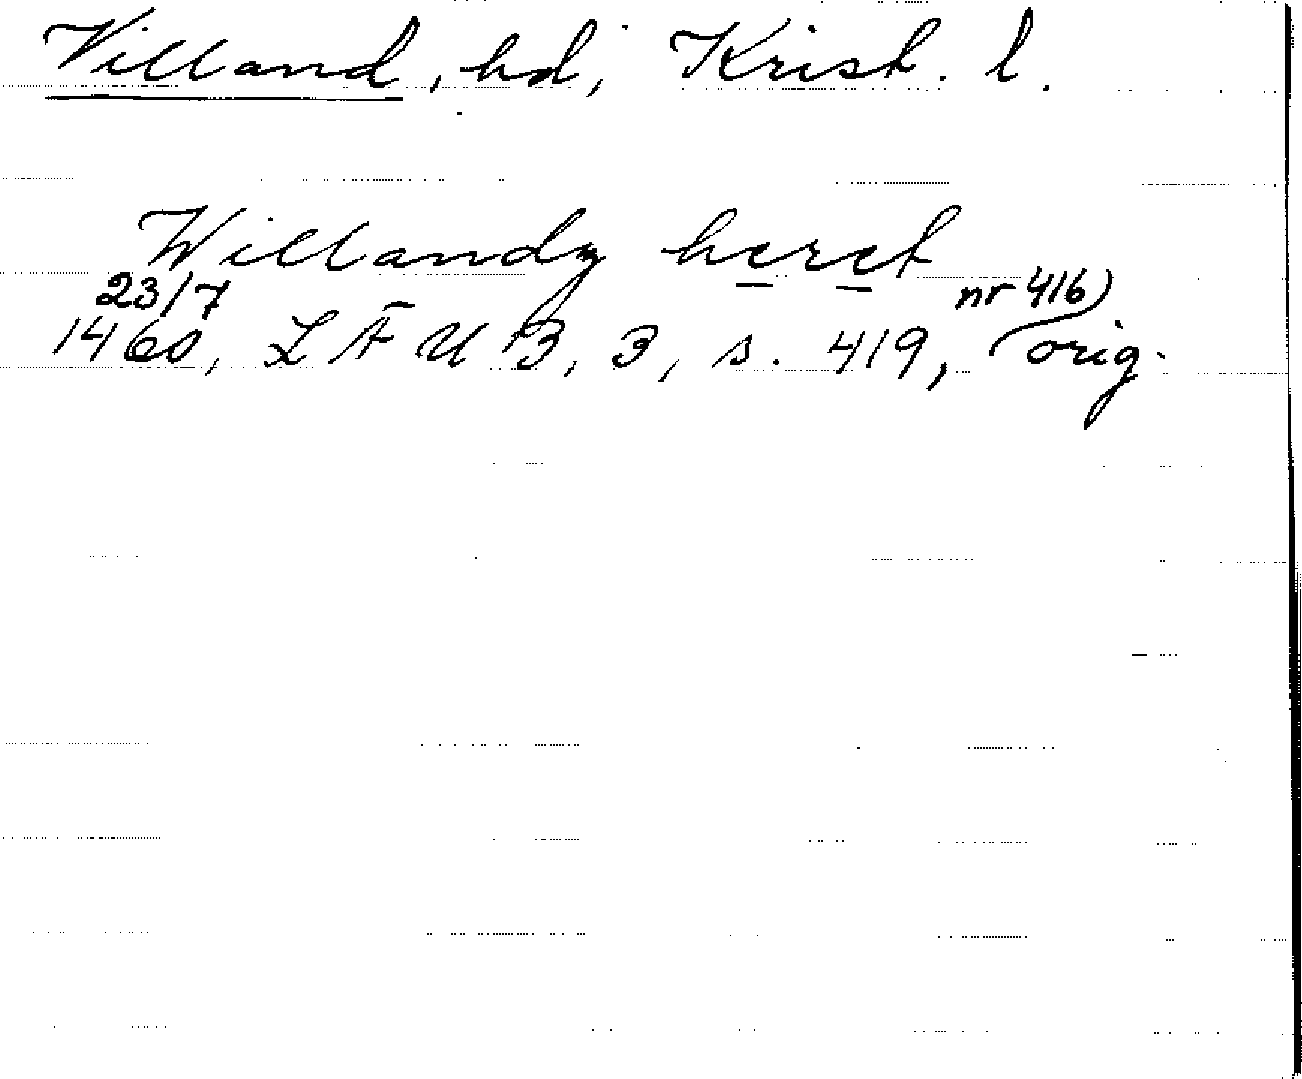 Villand, hd, Krist. l.
Willandz heret
23/7 nr 416)
1460, LÄUB, 3, s. 419, orig.